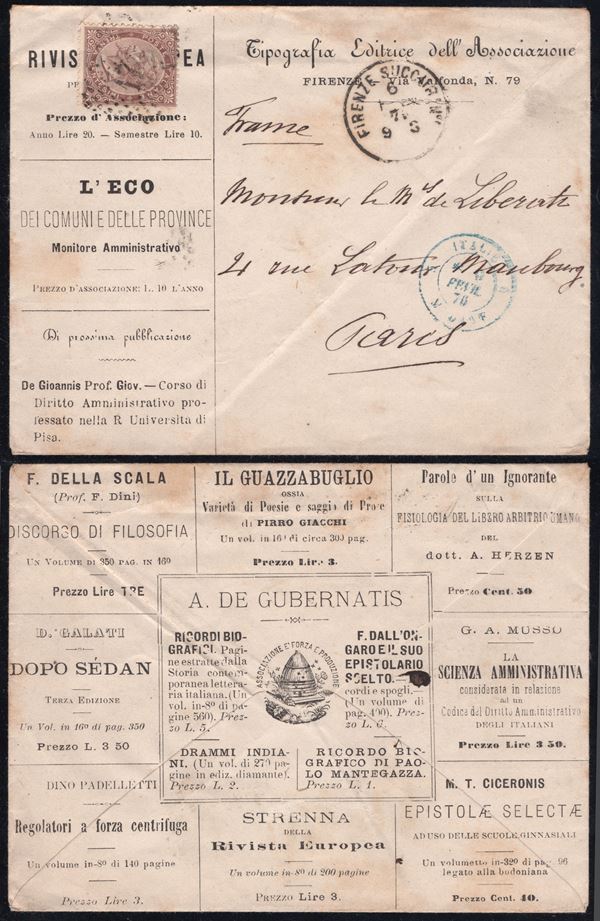 RIVIS EA
Prezzo d'Associazione:
Anno Lire 20. — Semestre Lire 10.
L'ECO
DEI COMUNI E DELLE PROVINCE
Monitore Amministrativo
PREZZO D'ASSOCIAZIONE: L. 10 L'ANNO
Di prossima pubblicazione
De Gioannis Prof. Giov. — Corso di
Diritto Amministrativo pro-
fessato nella R Università di
Pisa.
Tipografia Editrice dell'Associazione
FIRENZE Via Valfonda, N. 79
FIRENZE SUCCUR
Frame
Monsieur le Mis de Liberati
ITALIE
FEVR.
76
21 rue Latour Maubourg
Paris
F. DELLA SCALA
(Prof. F. Dini)
DISCORSO DI FILOSOFIA
UN VOLUME DI 350 PAG. IN 16º
Prezzo Lire TRE
IL GUAZZABUGLIO
OSSIA
Varietà di Poesie e saggio di Prose
di PIRRO GIACCHI
Un vol. in 16º di circa 300 pag.
Prezzo Lire 3.
Parole d'un Ignorante
SULLA
FISIOLOGIA DEL LIBERO ARBITRIO UMANO
DEL
dott. A. HERZEN
Prezzo Cent. 50
D. GALATI
DOPO SÉDAN
TERZA EDIZIONE
Un Vol. in 16º di pag. 350
Prezzo L. 3 50
A. DE GUBERNATIS
RICORDI BIO-
GRAFICI. Pagi-
ne estratte dalla
Storia contem-
poranea lettera-
ria italiana. (Un
vol. in-8º di pa-
gine 560). Prez-
zo L. 5.
ASSOCIAZIONE E' FORZA E PRODUZIONE
F. DALL'ON-
GARO E IL SUO
EPISTOLARIO
SCELTO.
cordi e spogli.
(Un volume di
pag. 400). Prez-
zo L. 6.
DRAMMI INDIA-
NI. (Un vol. di 270 pa-
gine in ediz. diamante).
Prezzo L. 2.
RICORDO BIO-
GRAFICO DI PAO-
LO MANTEGAZZA.
Prezzo L. 1.
G. A. MUSSO
LA
SCIENZA AMMINISTRATIVA
considerata in relazione
ad un
Codice del Diritto Amministrativo
DEGLI ITALIANI
Prezzo Lire 3 50.
DINO PADELLETTI
Regolatori a forza centrifuga
Un volume in-8º di 140 pagine
Prezzo Lire 3.
STRENNA
DELLA
Rivista Europea
Un volume in-8º di 200 pagine
PREZZO LIRE 3.
M. T. CICERONIS
EPISTOLÆ SELECTÆ
AD USO DELLE SCUOLE GINNASIALI
Un volumetto in-32º di pag. 96
legato alla bodoniana
Prezzo Cent. 40.